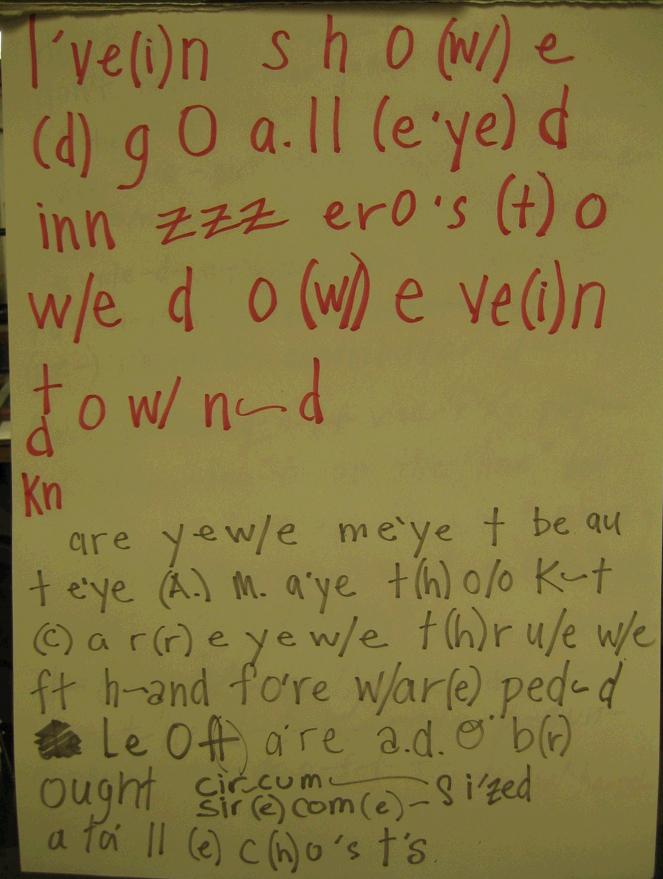 I've(i)n s h o (w/) e
(d) g O a.ll (e'ye) d
inn zzz erO's (t) o
w/e d o (w/) e ve(i)n
t o w/ n-d
d
Kn
are yew/e me'ye t be au
t e'ye (A.) m. a'ye t(h) o/o K-t
(c) a r(r) e ye w/e t(h)r u/e w/e
ft h-and fo're w/ar(e) ped-d
Le Oft) a're a.d. O' b(r)
ought cir-cum-si'zed
sir(e)com(e)-
a ta' ll (e) c(h)o's t's